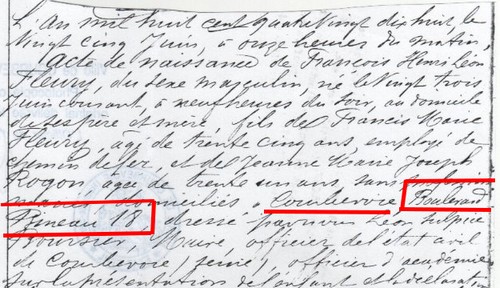 L'An mil huit cent quatre vingt dix huit le
Vingt cinq Juin, à onze heures du matin,
Acte de naissance de François Henri Léon
Fleury, du sexe masculin, né le Vingt trois
Juin courant, à neuf heures du soir, au domicile
de ses père et mère fils de Francis Marie
Fleury, âgé de trente cinq ans, employé de
chemin de fer, et de Jeanne Marie Joseph
Rogon âgée de trente un ans, sans
mariés domiciliés à Courbevoie, Boulevard
Bineau 18, dressé par nous Léon
Boursier, Maire, officier de l'état civil
de Courbevoie, (Seine), officier d'académie
sur la présentation de l'enfant et la déclaration